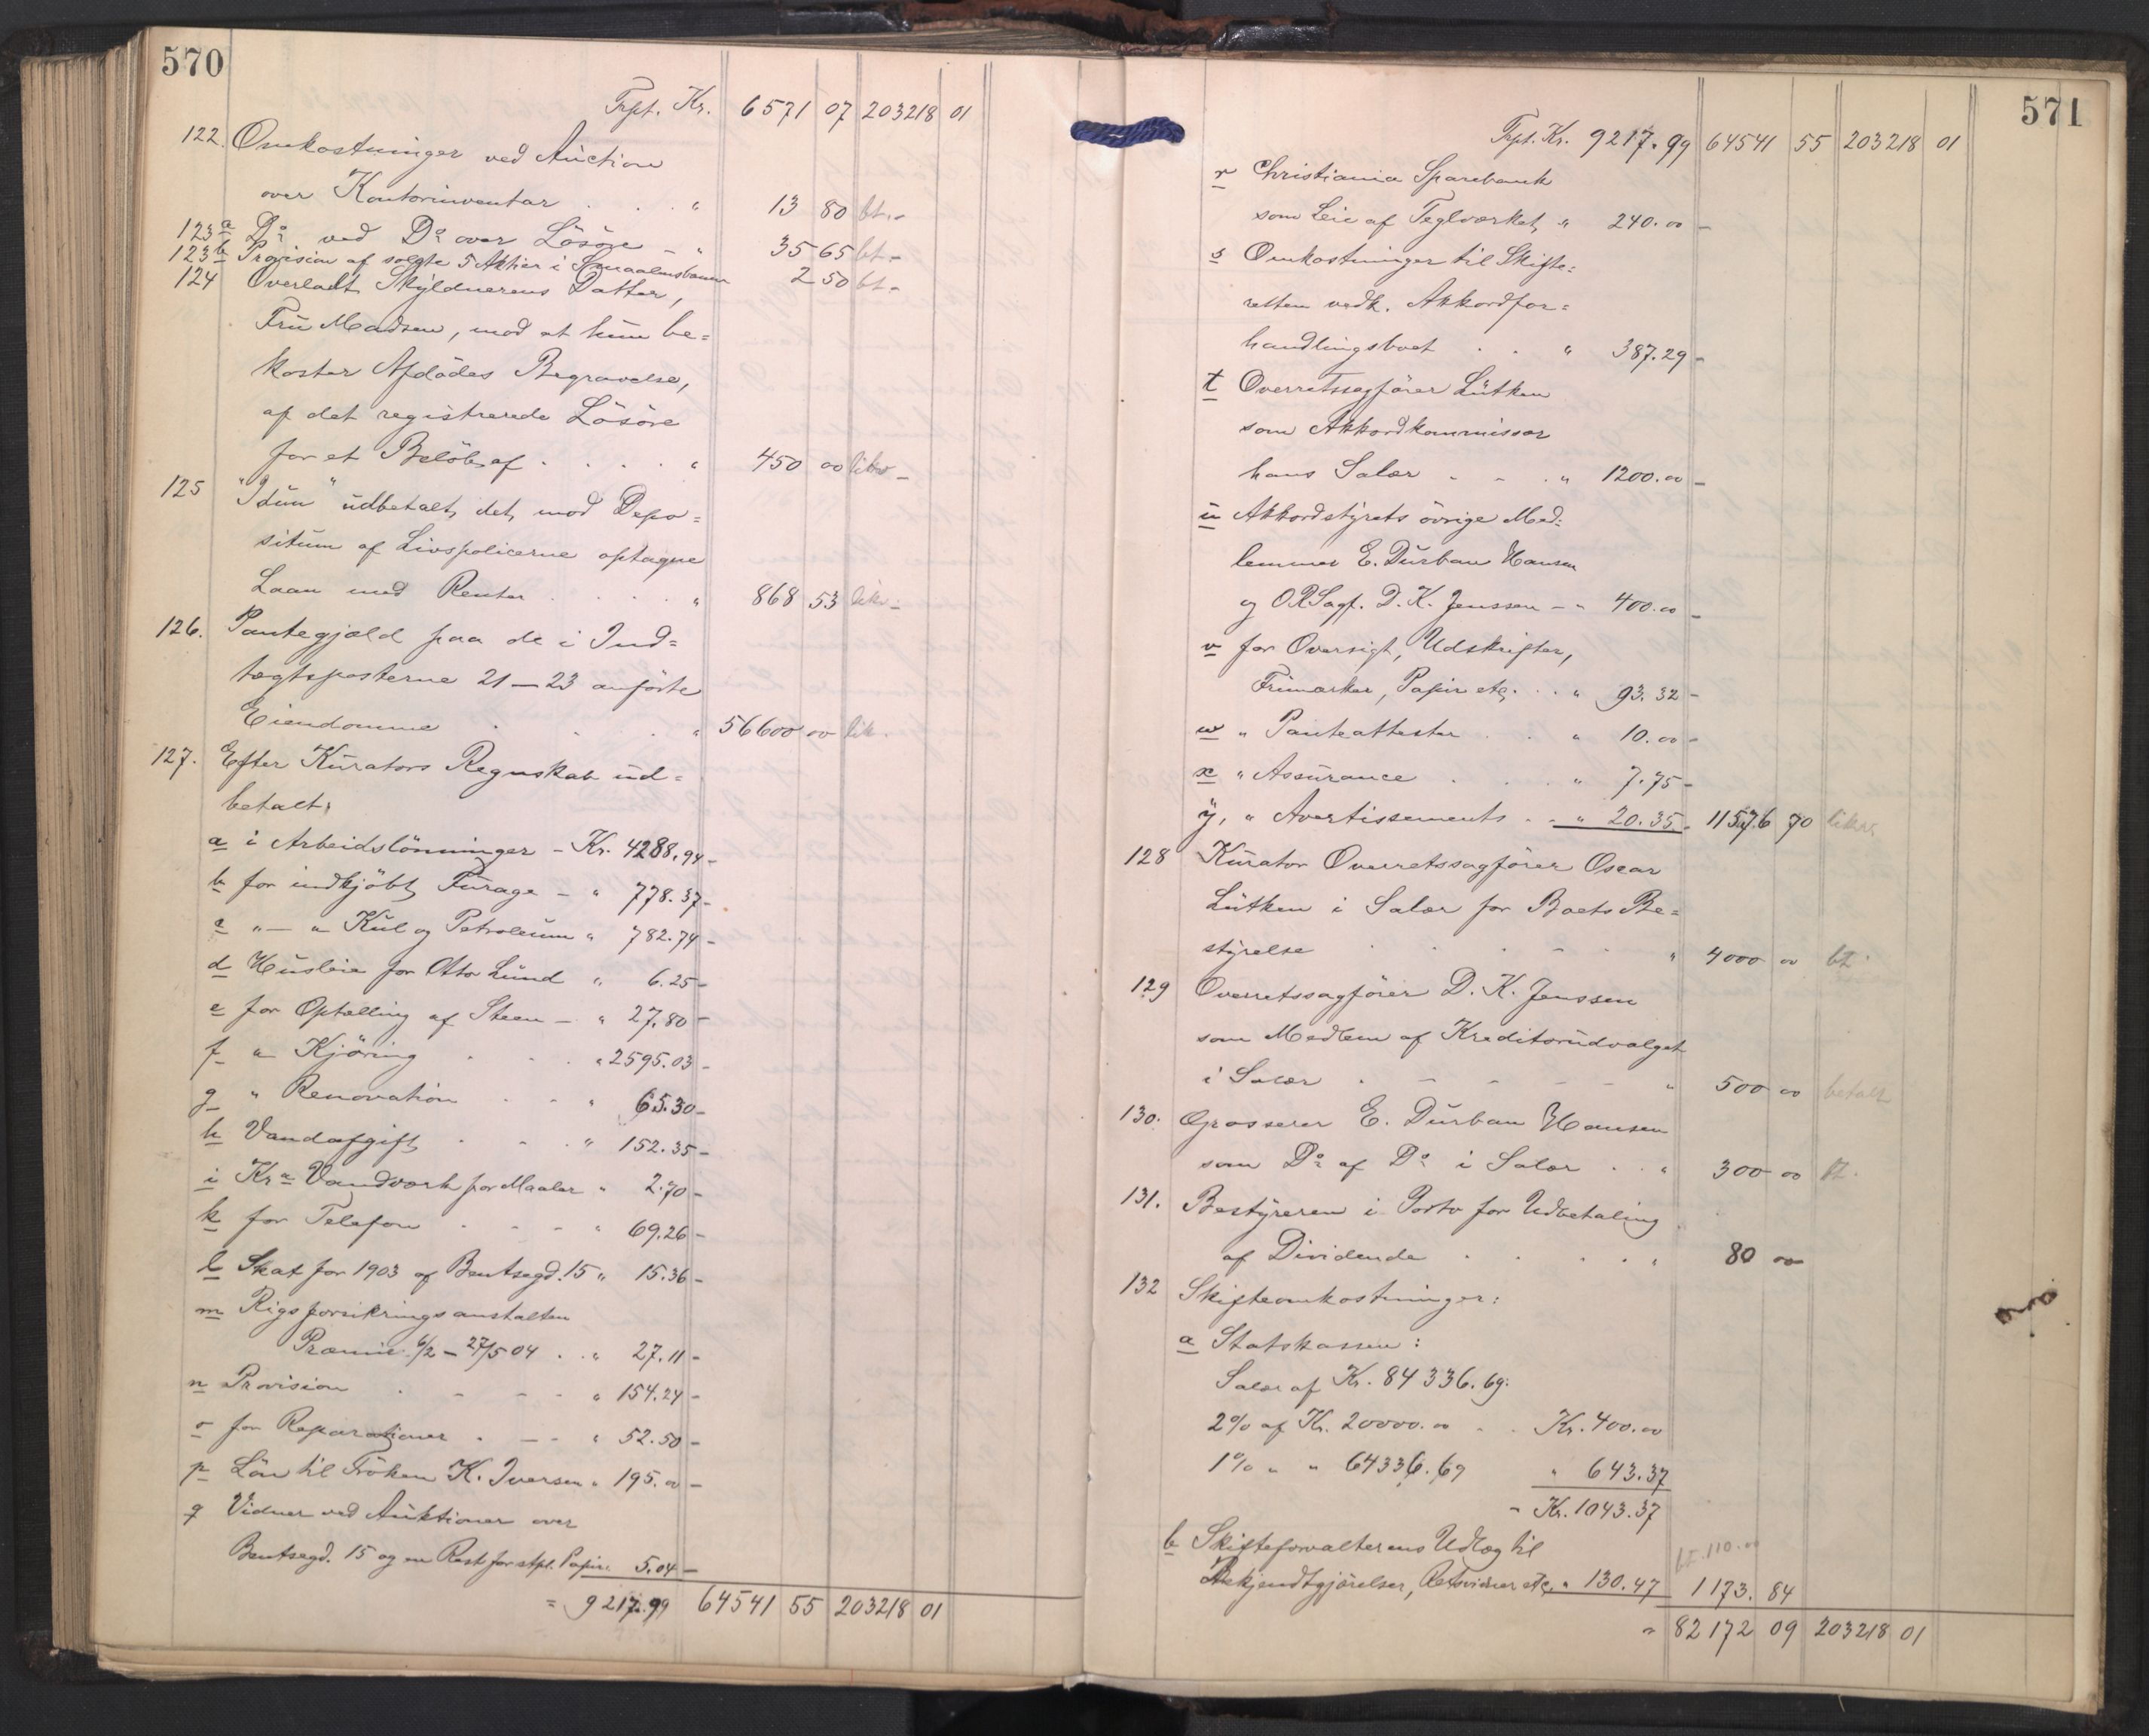 570
Trpt. Kr. 6571 07 203218 01
122. Omkostninger ved Auction
over Kontorinventar . . . " 13 80 bt. -
123a Do ved Do over Lösöre - " 35 65 bt -
123b Provision af solgte 5 Aktier i Smaalensbanen 2 50 bt -
124 Overladt Skyldnerens Datter,
Fru Madsen, mod at hun be=
koster Afdödes Begravelse,
af det registrerede Lösöre
for et Belöb af . . . . " 450 00 likv -
125 "Idun" udbetalt det, mod Depo=
situm af Livspolicerne optagne
Laan med Renter . . . . " 868 53 likv -
126. Pantegjæld paa de i Ind=
tægtsposterne 21 - 23 anförte
Eiendomme . . . " 56600 00 lik.
127. Efter Kurators Regnskab ud=
betalt:
a i Arbeidslönninger - Kr. 4288.94 -
b for indkjöbt Furage - " 778.37 -
c " - " Kul og Petroleum " 782.74 -
d Husleie for Otto Lund " 6.25 -
e for Optælling af Steen - " 27.80 -
f " Kjöring . . . " 2595.03 -
g " Renovation . . " 65.30 -
h Vandafgift . . . " 152.35 -
i Kra Vandværk for Maaler " 2.70 -
k for Telefon . . . " 69.26 -
l Skat for 1903 af Bentsegd. 15 " 15.36 -
m Rigsforsikringsanstalten
Præmie 6/2 - 27/5 04 . . " 27.11 -
n Provision . . . . " 154.24 -
o for Reparationer . - - " 52.50 -
p Lön til Fröken K. Iversen " 195.00 -
q Vidner ved Auktioner over
Bentsegd. 15 og en Rest for stpl. Papir. 5.04 -
= 9217.99 64541 55 203218 01
571
Trpt. Kr. 9217.99 64541 55 203218 01
r Christiania Sparebank
som Leie af Teglværket " 240.00 -
s Omkostninger til Skifte=
retten vedk. Akkordfor=
handlingsboet . . " 387.29 -
t Overretssagförer Lütken
som Akkordkommissær
hans Salær - - . " 1200.00 -
u Akkordstyrets övrige Med=
lemmer E. Durban Hansen
og ORSagf. D. K. Jenssen - " 400.00 -
v for Oversigt, Udskrifter,
Frimærker, Papir etc. . . " 93.32 -
w " Panteattester . . " 10.00 -
x " Assurance . . . " 7.75 -
y, " Avertissements . . " 20.35. 11576 70 likv.
128 Kurator Overretssagförer Oscar
Lütken i Salær for Boets Be=
styrelse . . . - . " 4000 00 bt.
129 Overretssagförer D. K. Jenssen
som Medlem af Kreditorudvalget
i Salær . - - - - " 500 00 betalt
130. Grosserer E. Durban Hansen
som Do af Do i Salær . . " 300 00 bt.
131. Bestyreren i Porto for Udbetaling
af Dividende . . . . " 80 00
132 Skifteomkostninger:
a Statskassen:
Salær af Kr. 84336.69:
2% af Kr. 20000.00 - . Kr. 400.00
1% " " 64336.69 " 643.37
- Kr. 1043.37
b Skifteforvalterens Udlæg til bt. 110.00
Bekjendtgjörelser, Retsvidner etc. " 130.47 1173. 84
= 82172 09 203218 01